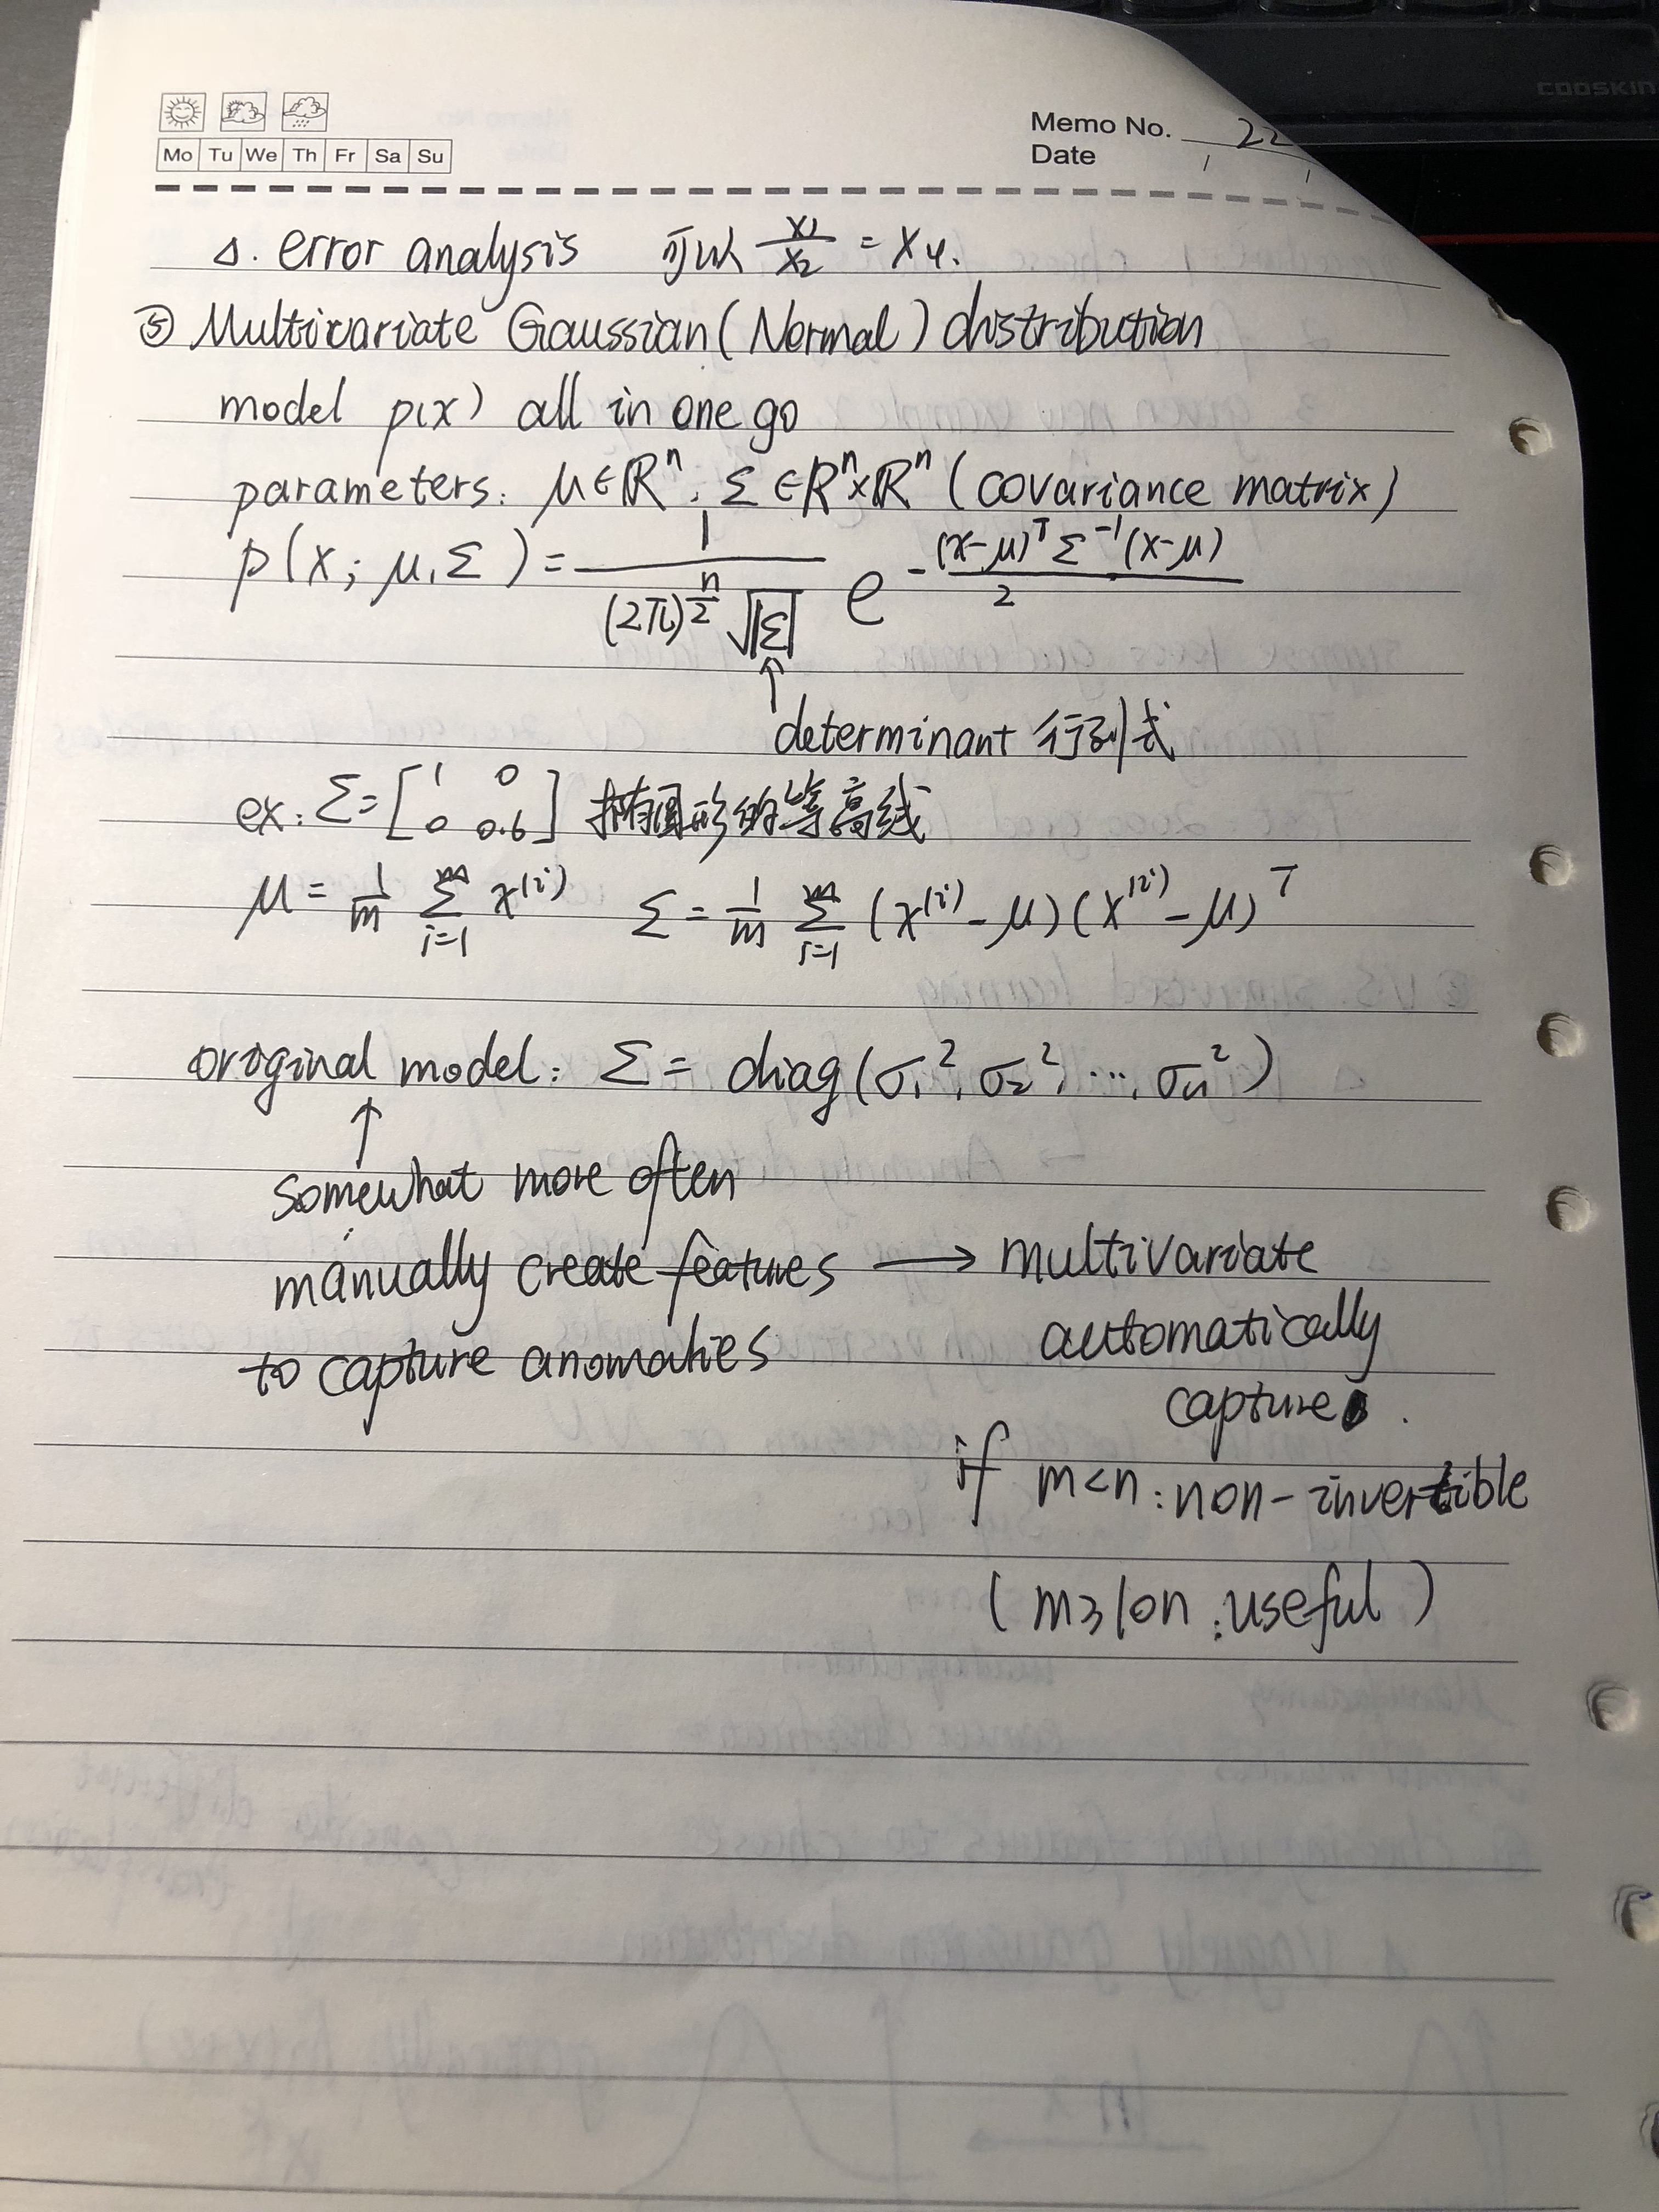 COOSKIN
Memo No. 22
Mo Tu We Th Fr Sa Su
Date / /
△. error analysis 可以 x₁/x₂ = x₄.
⑤ Multivariate Gaussian (Normal) distribution
model p(x) all in one go
parameters: μ∈ℝⁿ, Σ∈ℝⁿ×ℝⁿ (covariance matrix)
p(x; μ, Σ) = 1/((2π)^(n/2) √|Σ|) e^(-(x-μ)ᵀ Σ⁻¹ (x-μ)/2)
↑
determinant 行列式
ex: Σ = [1 0; 0 0.6] 椭圆形的等高线
μ = 1/m Σ_{i=1}^{m} x⁽ⁱ⁾ Σ = 1/m Σ_{i=1}^{m} (x⁽ⁱ⁾ - μ)(x⁽ⁱ⁾ - μ)ᵀ
original model: Σ = diag(σ₁², σ₂², ..., σₙ²)
↑
somewhat more often
manually create features → multivariate
to capture anomalies automatically
capture.
if m<n: non-invertible
(m≥10n: useful)